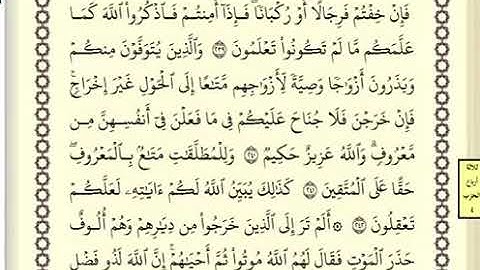 فَإِنْ خِفْتُمْ فَرِجَالًا أَوْ رُكْبَانًا ۖ فَإِذَا أَمِنتُمْ فَاذْكُرُوا اللَّهَ كَمَا
عَلَّمَكُم مَّا لَمْ تَكُونُوا تَعْلَمُونَ ﴿٢٣٩﴾ وَالَّذِينَ يُتَوَفَّوْنَ مِنكُمْ
وَيَذَرُونَ أَزْوَاجًا وَصِيَّةً لِّأَزْوَاجِهِم مَّتَاعًا إِلَى الْحَوْلِ غَيْرَ إِخْرَاجٍ ۚ
فَإِنْ خَرَجْنَ فَلَا جُنَاحَ عَلَيْكُمْ فِي مَا فَعَلْنَ فِي أَنفُسِهِنَّ مِن
مَّعْرُوفٍ ۗ وَاللَّهُ عَزِيزٌ حَكِيمٌ ﴿٢٤٠﴾ وَلِلْمُطَلَّقَاتِ مَتَاعٌ بِالْمَعْرُوفِ ۖ
حَقًّا عَلَى الْمُتَّقِينَ ﴿٢٤١﴾ كَذَٰلِكَ يُبَيِّنُ اللَّهُ لَكُمْ آيَاتِهِ لَعَلَّكُمْ
تَعْقِلُونَ ﴿٢٤٢﴾ ۞ أَلَمْ تَرَ إِلَى الَّذِينَ خَرَجُوا مِن دِيَارِهِمْ وَهُمْ أُلُوفٌ
حَذَرَ الْمَوْتِ فَقَالَ لَهُمُ اللَّهُ مُوتُوا ثُمَّ أَحْيَاهُمْ ۚ إِنَّ اللَّهَ لَذُو فَضْلٍ